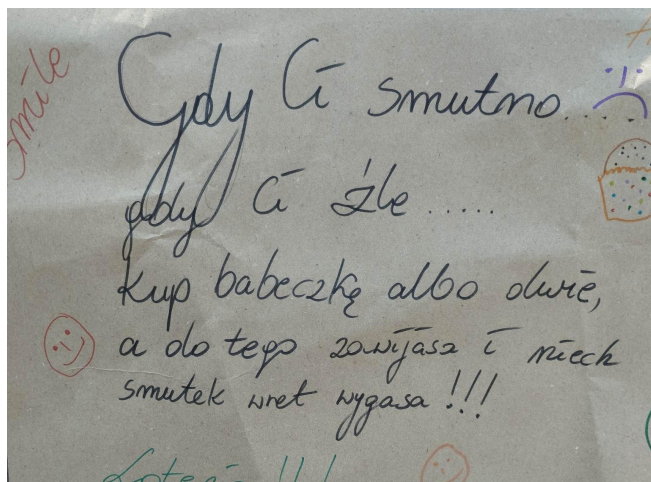 smile
Gdy Ci smutno.....
gdy Ci źle .....
kup babeczkę albo dwie,
a do tego zawijasa i niech
smutek wnet wygasa !!!